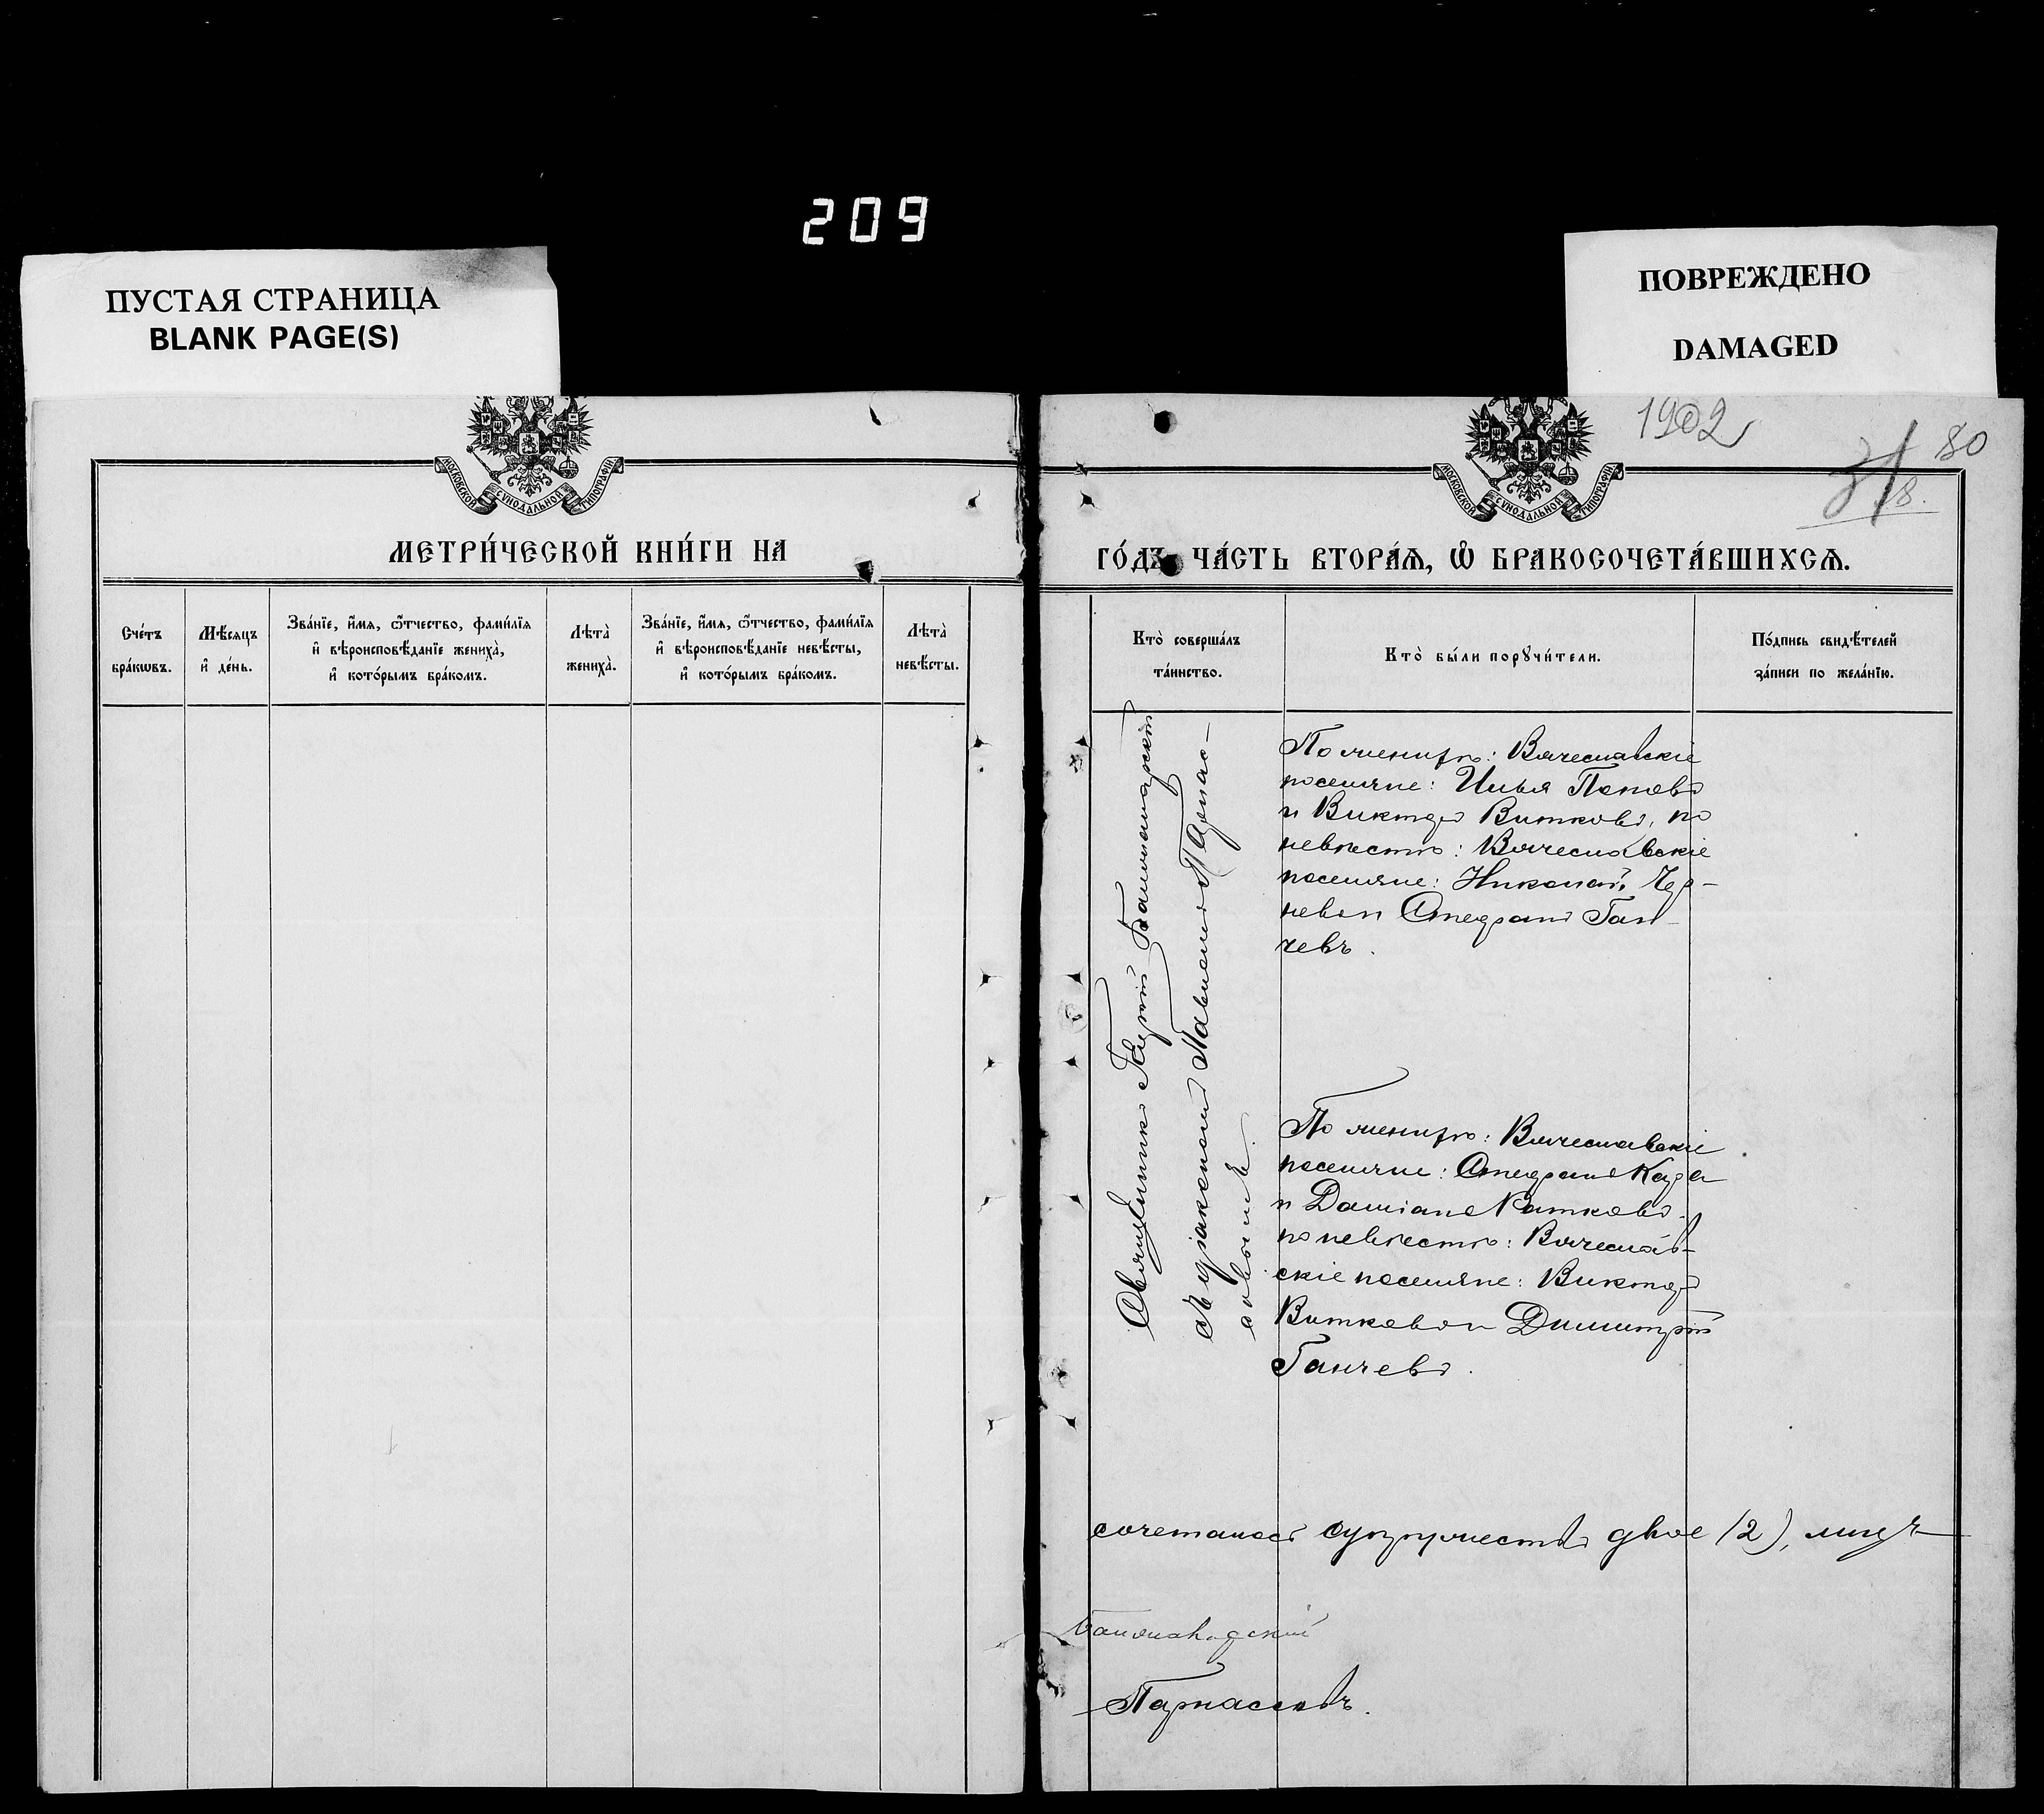 209
ПУСТАЯ СТРАНИЦА
BLANK PAGE(S)
ПОВРЕЖДЕНО
DAMAGED
МОСКОВСКОЙ СѴНОДАЛЬНОЙ ТИПОГРАФІИ
МЕТРИ́ЧЕСКОЙ КНИ́ГИ НА
Сче́тъ бра́кѡвъ.
Мѣ́сяцъ и҆ де́нь.
Зва́нїе, и҆́мя, ѻ҆́тчество, фами́лїя
и҆ вѣроисповѣ́данїе жениха̀,
и҆ кото́рымъ бра́комъ.
Лѣта̀ жениха̀.
Зва́нїе, и҆́мя, ѻ҆́тчество, фами́лїя
и҆ вѣроисповѣ́данїе невѣ́сты,
и҆ кото́рымъ бра́комъ.
Лѣта̀ невѣ́сты.
1902
80
МОСКОВСКОЙ СѴНОДАЛЬНОЙ ТИПОГРАФІИ
ГО́ДЪ ЧА́СТЬ ВТОРА́Ѧ, Ѡ҆ БРАКОСОЧЕТА́ВШИХСѦ.
Кто̀ соверша́лъ
та́инство.
Кто̀ бы́ли порꙋчи́тели.
По́дпись свидѣ́телей
за́писи по жела́нїю.
Священникъ
съ діакономъ Павломъ Парнас-
совымъ.
По жениху: Вячеславскіе
поселяне: Илья Поповъ
и Викторъ Витковъ, по
невѣстѣ: Вячеславскіе
поселяне: Николай Чер-
невъ и Стефанъ Ган-
чевъ.
По жениху: Вячеславскіе
поселяне: Стефанъ Кара
и Даміанъ
по невѣстѣ: Вячеслав-
скіе поселяне: Викторъ
Витковъ и Димитрій
Ганчевъ.
сочеталось супружествъ двое (2), лицъ
Парнассовъ.